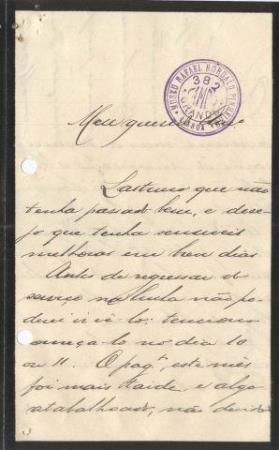 MUSEU RAFAEL BORDALO PINHEIRO
382
Meu querido
Lastimo que não
tenha passado bem, e dese-
jo que tenha sensiveis
melhoras em bom dias
Antes de regressar ao
serviço na não po-
derei ir vê-lo: tenciono
começa-lo no dia 10
ou 11. O pag.º este mês
foi mais tarde e algo
atabalhoado, não devido